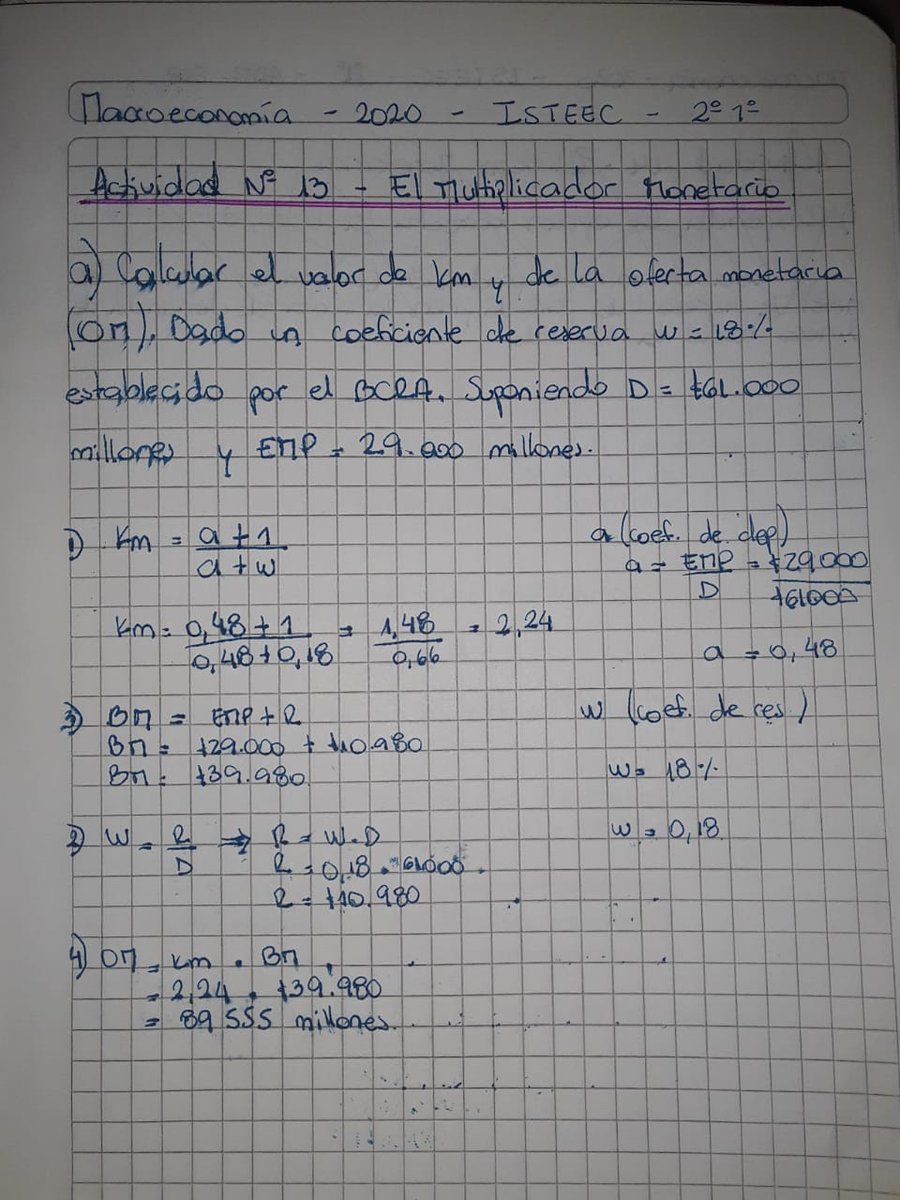 Macroeconomía - 2020 - ISTEEC - 2º 1º
Actividad Nº 13 - El Multiplicador Monetario
a) Calcular el valor de Km y de la oferta monetaria
(OM). Dado un coeficiente de reserva w = 18%
establecido por el BCRA. Suponiendo D = $61.000
millones y EMP = 29.000 millones.
1) Km = a + 1 / a + w
Km = 0,48 + 1 / 0,48 + 0,18 = 1,48 / 0,66 = 2,24
a (coef. de dep)
a = EMP / D = $29.000 / $61000
a = 0,48
3) BM = EMP + R
BM = $29.000 + $10.980
BM = $39.980
w (coef. de res.)
w = 18%
w = 0,18
2) W = R / D → R = W . D
R = 0,18 . 61000
R = $10.980
4) OM = Km . BM
= 2,24 . $39.980
= 89 555 millones.